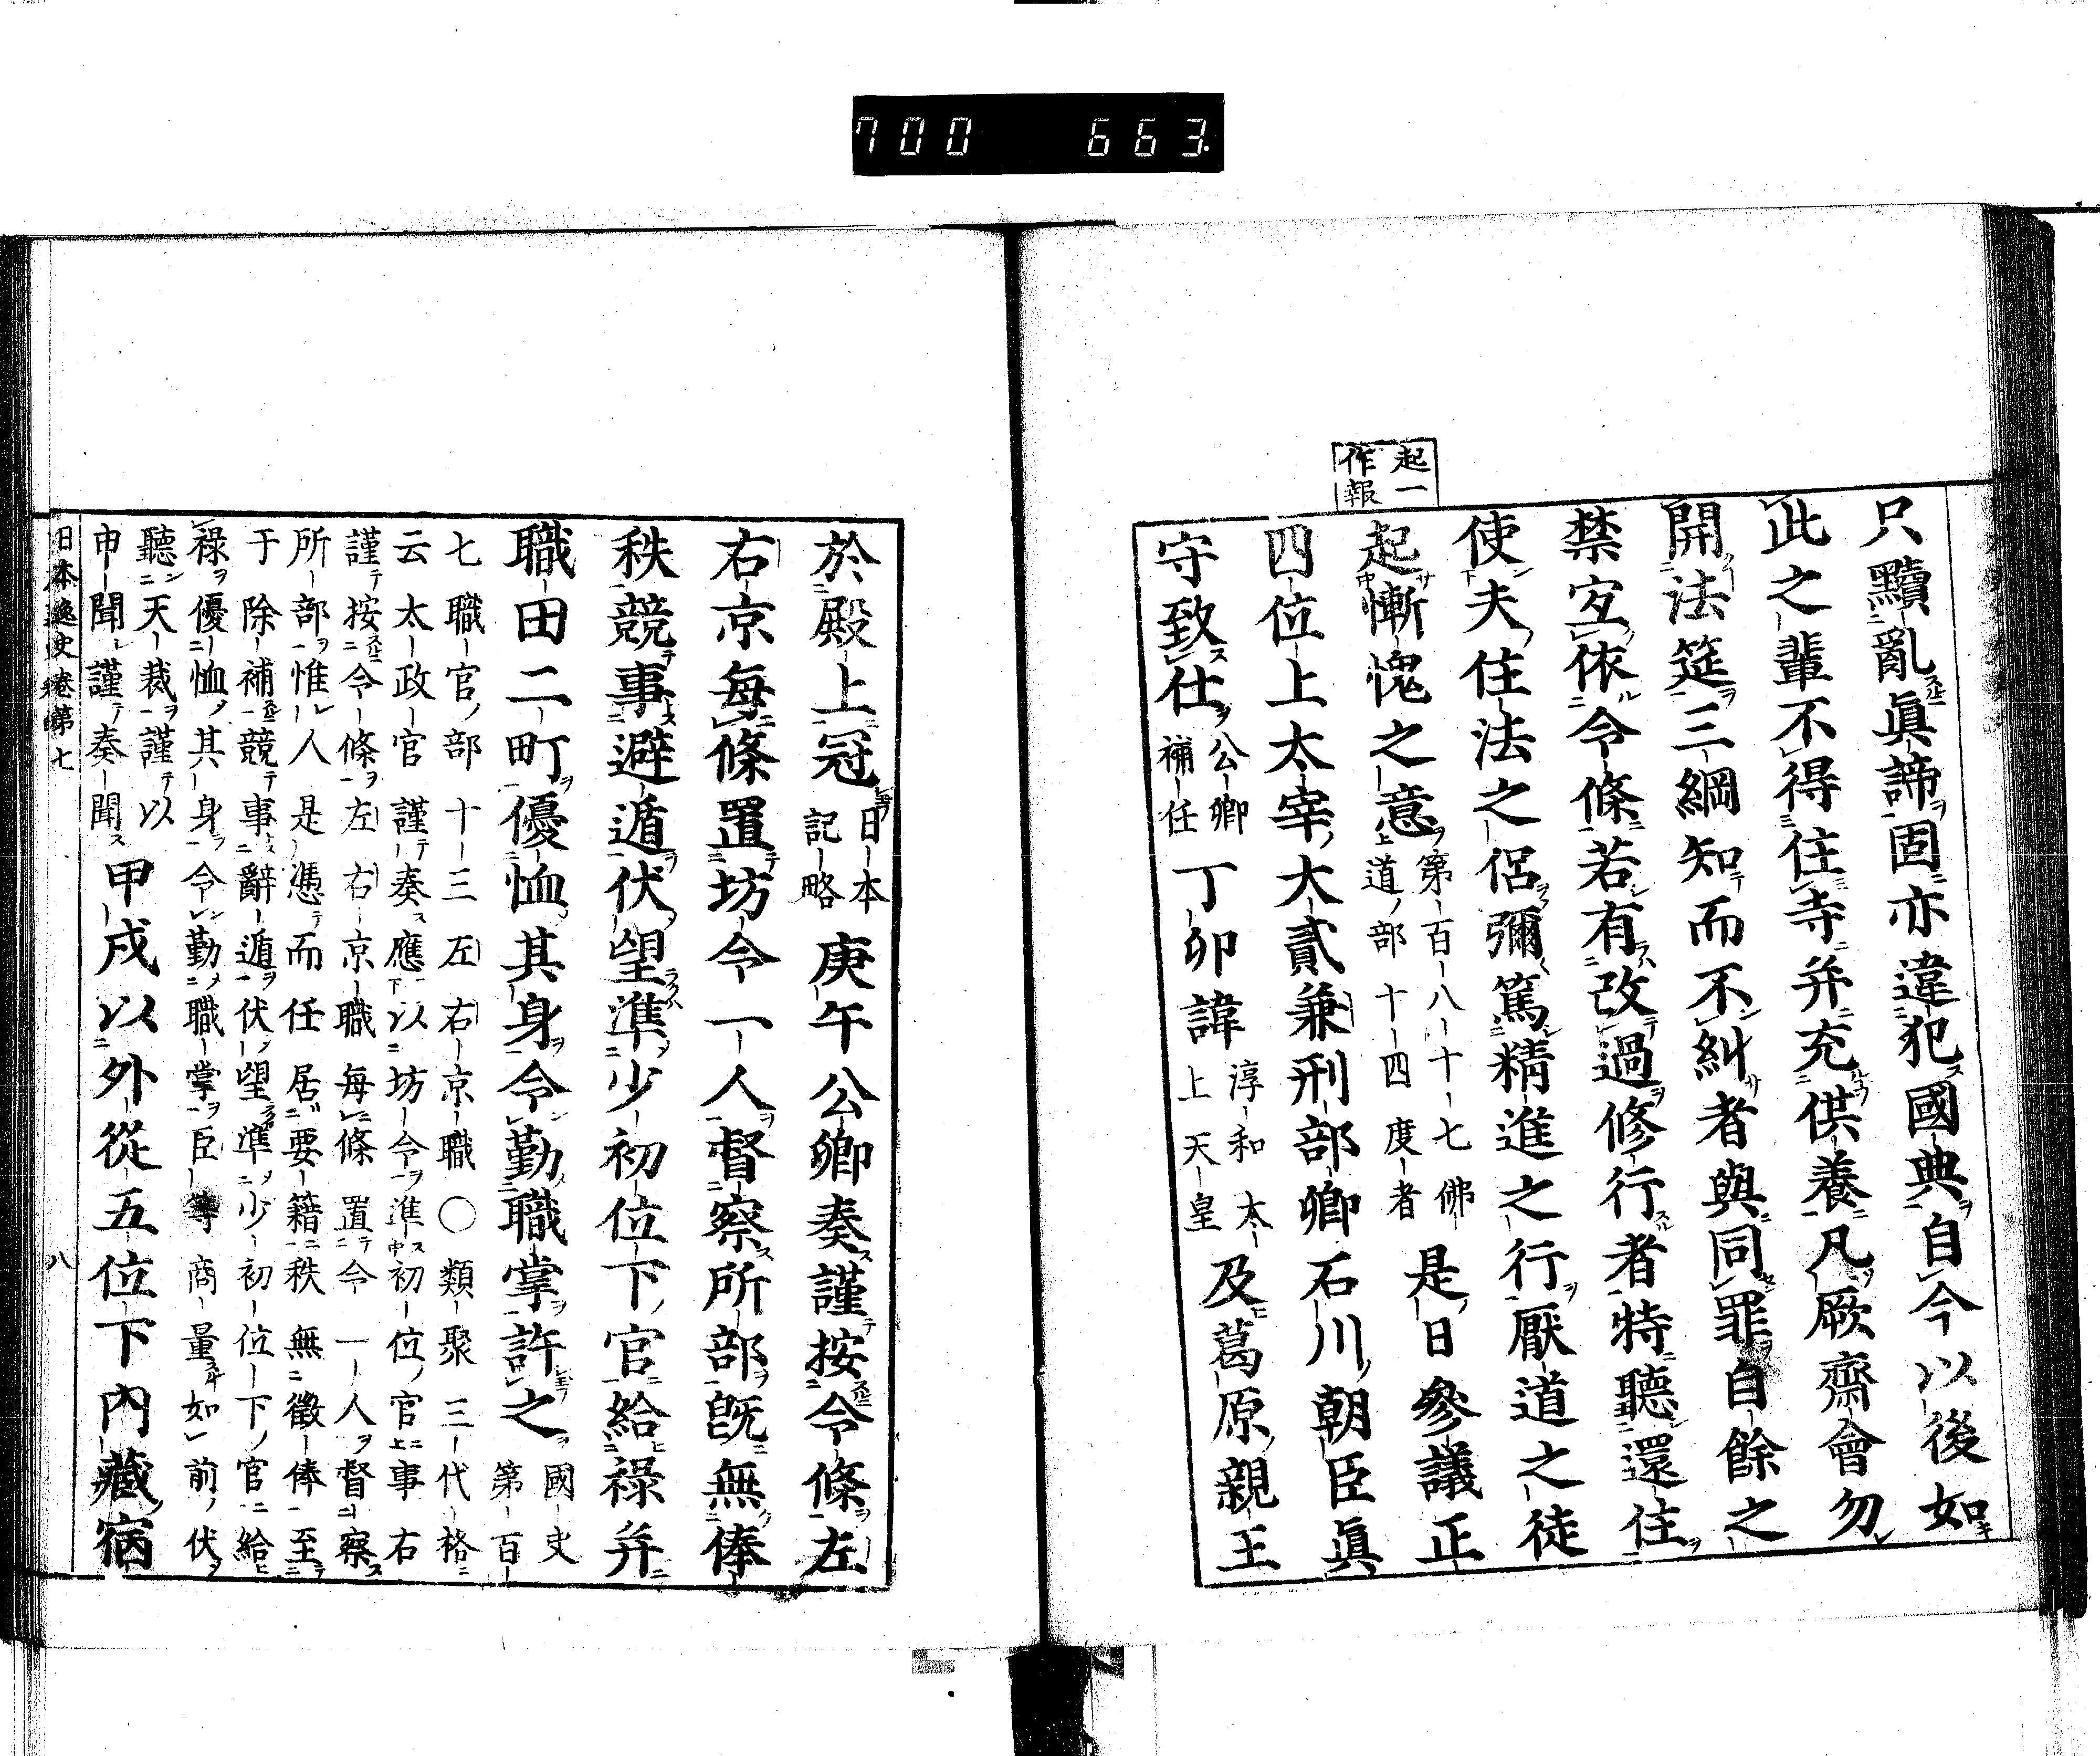 700 663
起一
作報
只黷亂眞諦固亦違犯國典自今以後如
此之輩不得住寺并充供養凡厥齋會勿
開法筵三綱知而不糾者與同罪自餘之
禁宐依令條若有改過修行者特聽還住
使夫住法之侶彌篤精進之行厭道之徒
起慚愧之意第百八十七佛
道部十四度者是日參議正
四位上太宰大貳兼刑部卿石川朝臣眞
守致仕公卿
補任丁卯諱淳和太
上天皇及葛原親王
於殿上冠日本
記略庚午公卿奏謹按令條左
右京每條置坊令一人督察所部旣無俸
秩競事避遁伏望準少初位下官給祿并
職田二町優恤其身令勤職掌許之國史
第百
七職官部十三左右京職〇類聚三代格
云太政官謹奏應以坊令準初位官事右
謹按令條左右京職每條置令一人督察
所部惟人是憑而任居要籍秩無徵俸至
于除補競事辭遁伏望準少初位下官給
祿優恤其身令勤職掌臣等商量如前伏
聽天裁謹以
申聞謹奏聞甲戌以外從五位下內藏宿
日本逸史卷第七
八